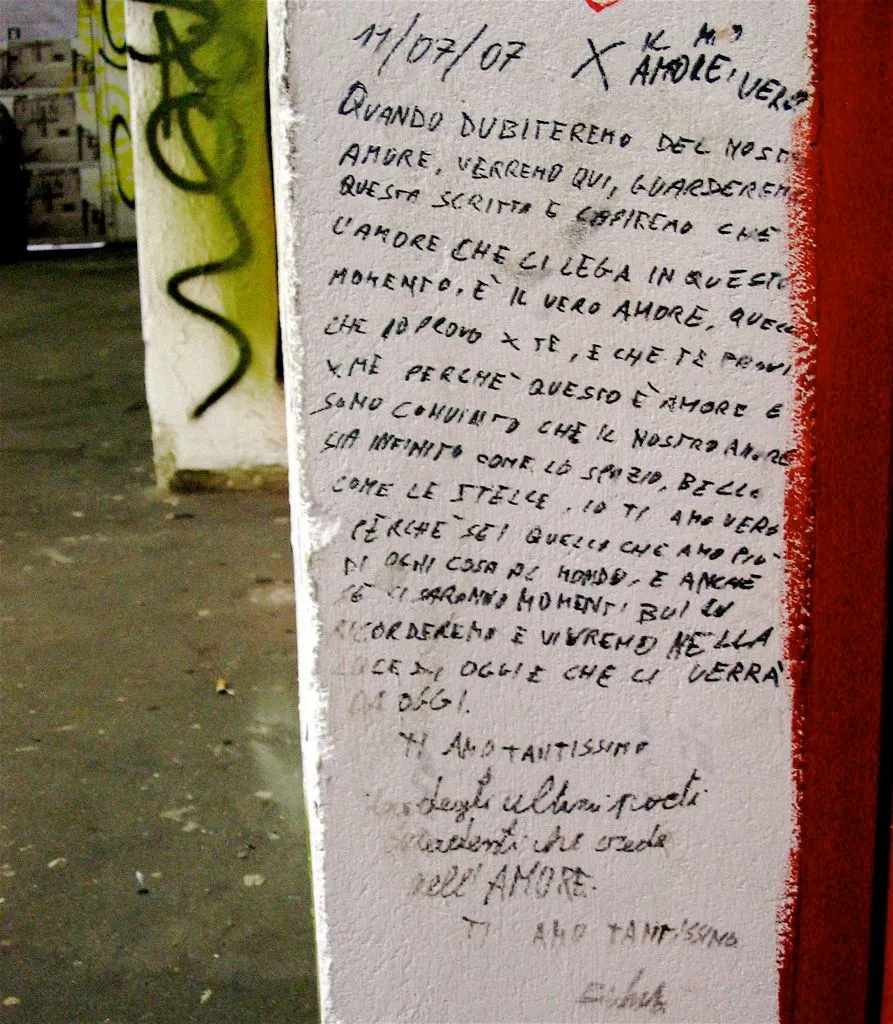 11/07/07 X IL M°
AMORE, VERO
QUANDO DUBITEREMO DEL NOST
AMORE, VERREMO QUI, GUARDEREM
QUESTA SCRITTA E CAPIREMO CHE
L'AMORE CHE CI LEGA IN QUESTO
MOMENTO, È IL VERO AMORE, QUELL
CHE IO PROVO X TE, E CHE TE PROVI
X ME PERCHE' QUESTO È AMORE E
SONO CONVINTO CHE IL NOSTRO AMORE
SIA INFINITO COME LO SPAZIO, BELLO
COME LE STELLE, IO TI AMO VERO
PERCHE' SEI QUELLO CHE AMO PIU'
DI OGNI COSA AL MONDO, E ANCHE
SE CI SARANNO MOMENTI BUI LI
RICORDEREMO E VIVREMO NELLA
LUCE DI OGGI E CHE CI VERRÀ
DA OGGI.
TI AMO TANTISSIMO
degli ultimi poeti
decadenti che crede
nell' AMORE.
TI AMO TANTISSIMO